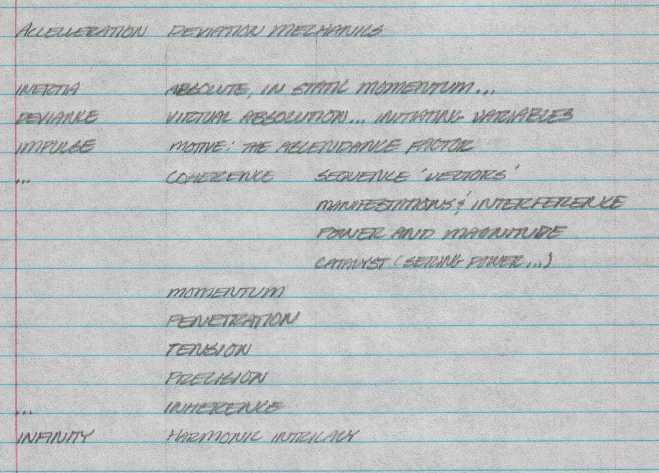 ACCELLERATION DEVIATION MECHANICS
INERTIA ABSOLUTE, IN STATIC MOMENTUM...
DEVIANCE VIRTUAL ABSOLUTION... INITIATING VARIABLES
IMPULSE MOTIVE: THE ASCENDANCE FACTOR
... COHERENCE SEQUENCE 'VECTORS'
MANIFESTATIONS & INTERFERENCE
POWER AND MAGNITUDE
CATALYST (SEIZING POWER...)
MOMENTUM
PENETRATION
TENSION
PRECISION
... INHERENCE
INFINITY HARMONIC INTRICACY